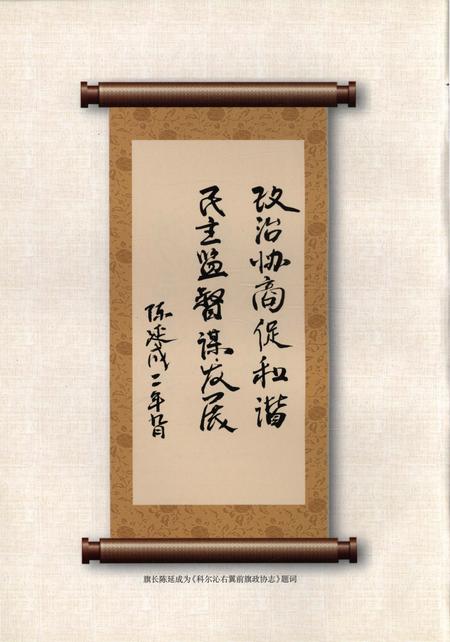 政治协商促和谐
民主监督谋发展
陈延成二年九月
旗长陈延成为《科尔沁右翼前旗政协志》题词